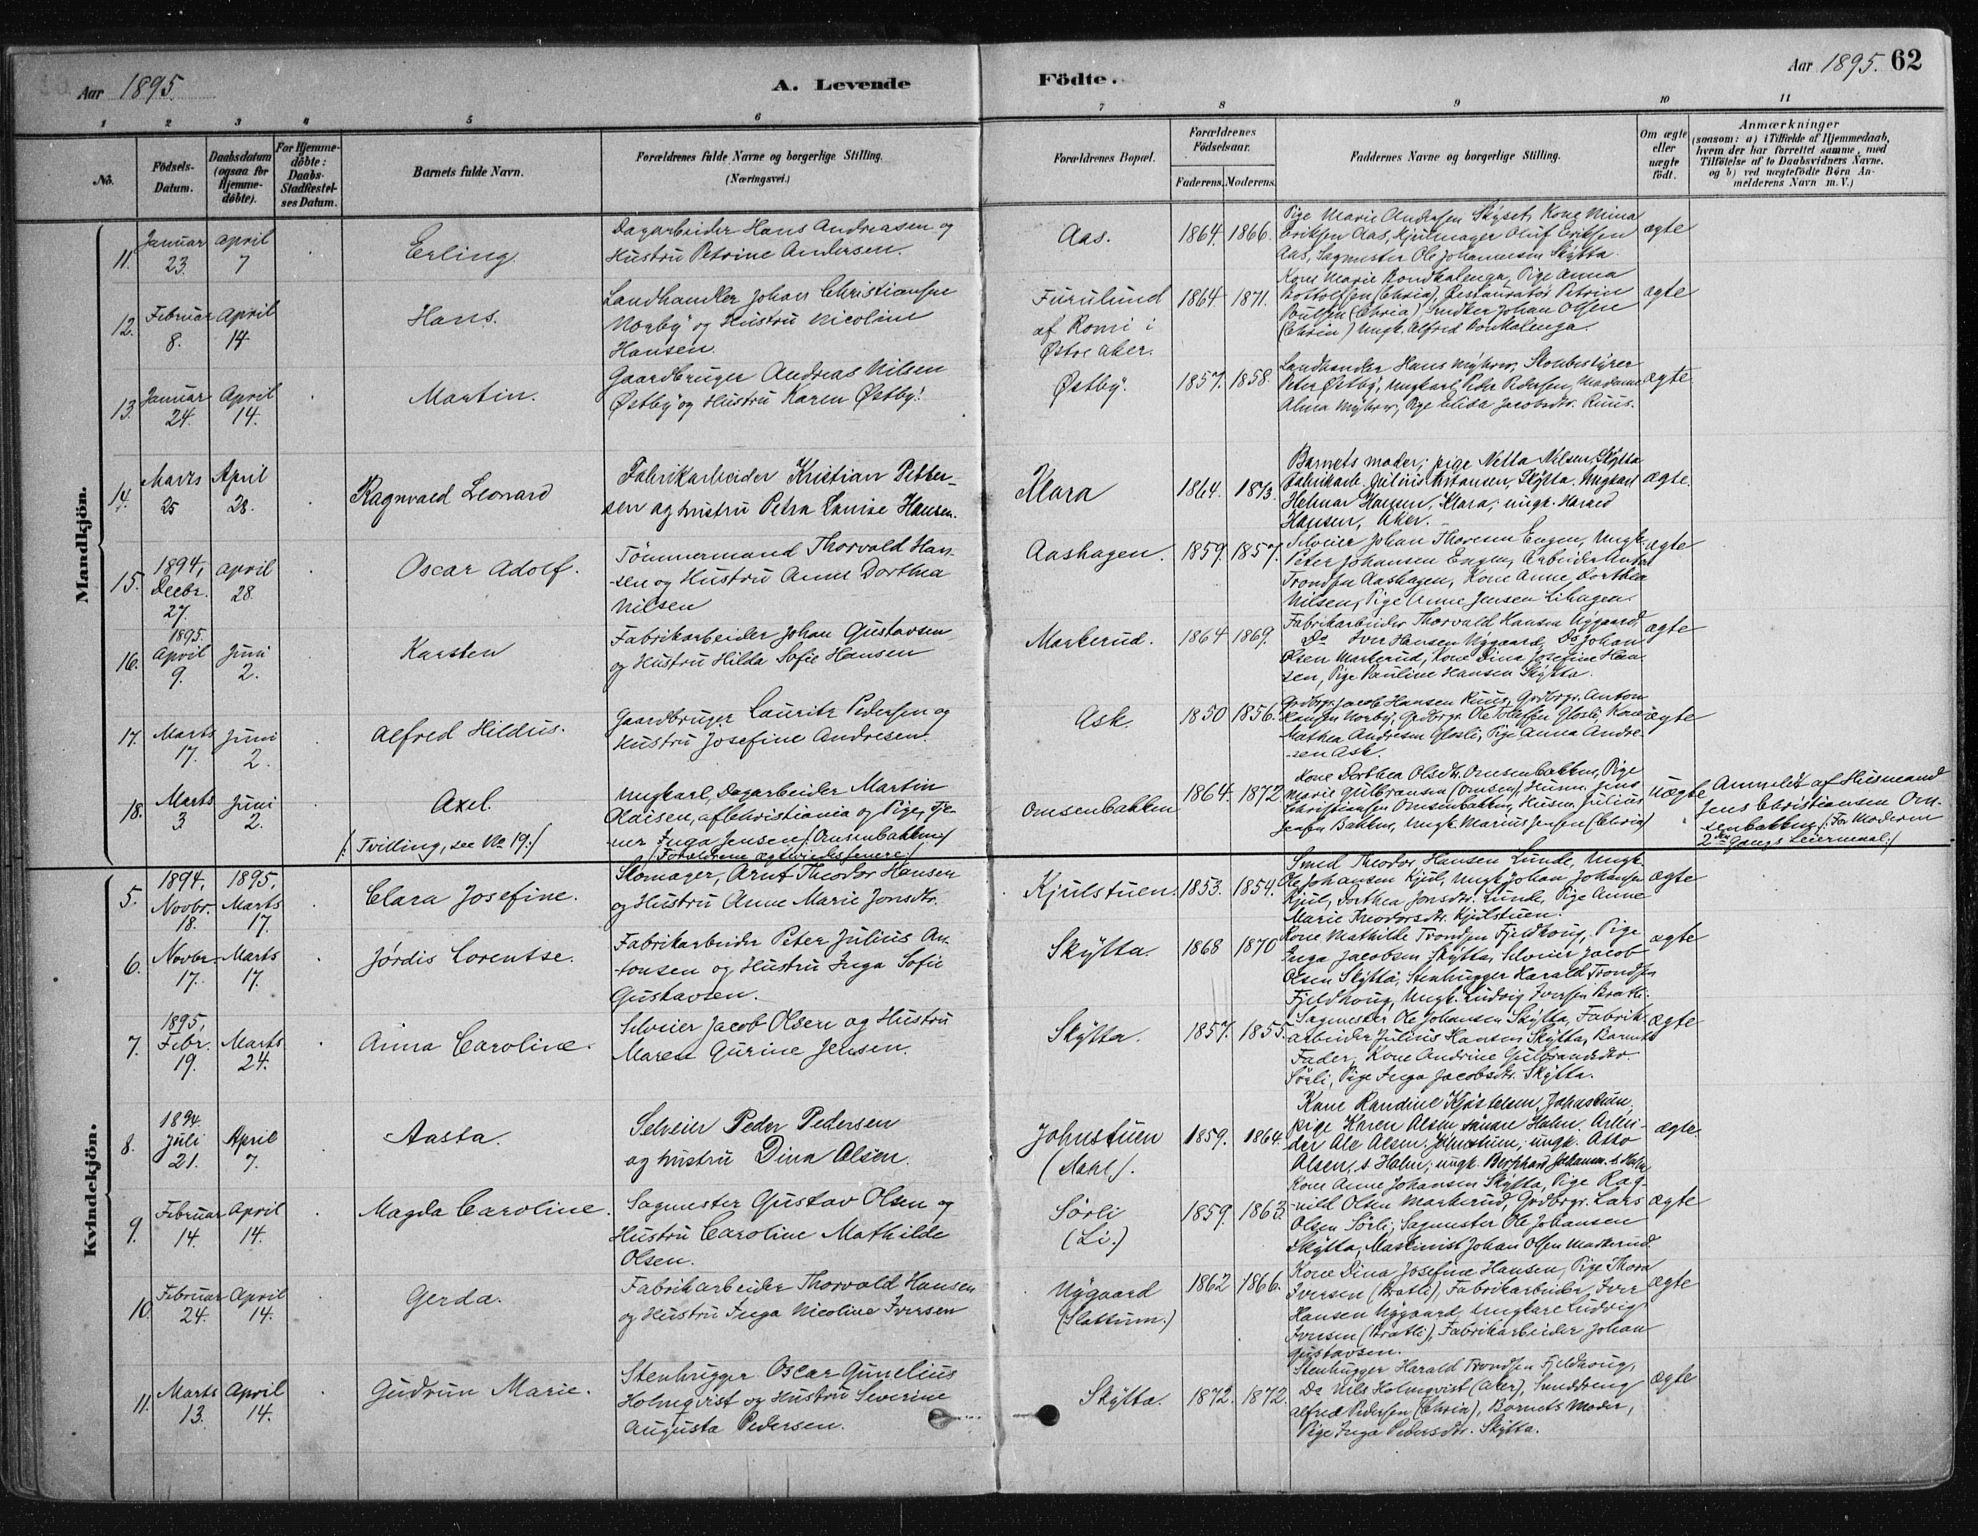 Aar 1895.
A. Levende
Födte.
Aar 1895. 62
1 2 3 4 5 6 7 8 9 10 11
No.
Födsels-
Datum.
Daabsdatum
(ogsaa for
Hjemme-
döbte).
For Hjemme-
döbte:
Daabs-
Stadfæstel-
ses Datum.
Barnets fulde Navn.
Forældrenes fulde Navne og borgerlige Stilling.
(Næringsvei.)
Forældrenes Bopæl.
Forældrenes
Födselsaar.
Faderens. Moderens.
Faddernes Navne og borgerlige Stilling.
Om ægte
eller
uægte
födt.
Anmærkninger
(saasom: a) i Tilfælde af Hjemmedaab,
hvem der har forrettet samme, med
Tilföielse af to Daabsvidners Navne.
og b) ved uægtefödte Börn An-
melderens Navn m. V.)
Mandkjön.
11. Januar 23. April 7
Erling.
Dagarbeider Hans Andreasen og
Hustru Petrine Andersen.
Aas.
1864. 1866.
Pige Marie Andersen Skÿset, Kone Mina
Eriksen Aas, Hjulmager Oluf Eriksen
Aas, Sagmester Ole Johannesen Skÿtta.
ægte
12. Februar 8. April 14
Hans.
Landhandler Johan Christiansen
Norbÿ og Hustru Nicoline
Hansen.
Furulund
af Romi i
Østre aker.
1864 1871.
Kone Marie
Pige Anna
(Chria), Restauratør Petrin
Poulsen (Chria), Smedter Johan Olsen
(Chria) Ungk. Alfred
ægte
13. Januar 24. April 14.
Martin.
Gaardbruger Andreas Nilsen
Østbÿ og Hustru Karen Østbÿ.
Østbÿ.
1857. 1858.
Landhandler Hans Mÿhrer, Skovbestÿrer
Peter Østbÿ, Ungkarl Peter Pedersen, Madame
Alma Mÿhrer, Pige Elida Jacobsdtr. Ruus.
ægte
14. Marts 25 April 28.
Ragnvald Leonard
Fabrikarbeider Kristian Petter-
sen og hustru Petra Louise Hansen.
Klara
1864. 1873.
Barnets moder; pige Netta Nilsen, Skÿtta
Fabrikarb. Julius Kristansen, Skÿtta. Ungkarl
Helmar Hansen, Klara; ungk. Harald
Hansen, Aker.
ægte.
15. 1894, Decbr. 27. April 28.
Oscar Adolf.
Tømmermand Thorvald Han-
sen og Hustru Anne Dorthea
Nilsen
Aashagen.
1859. 1857.
Selveier Johan Thoresen Engen, Ungk.
Peter Johansen Engen, Arbeider Anton
Trondsen Aashagen, Kone Anne Dorthea
Nilsen, Pige Anne Jensen Lihagen.
ægte
16. 1895. April 9. Juni 2.
Karsten
Fabrikarbeider Johan Gustavsen
og Hustru Hilda Sofie Hansen
Markerud.
1864 1869.
Fabrikarbeider Thorvald Hansen Nÿgaard
Do Iver Hansen Nÿgaard, Do Johan
Olsen Markerud, Kone Dina Josefine Han-
sen, Pige Pauline Hansen Skÿtta.
ægte
17. Marts 17. Juni 2.
Alfred Hildus.
Gaardbruger Lauritz Pedersen og
Hustru Josefine Andresen.
Ask
1850 1856.
Grdbrgr. Jacob Hansen Ruus, Grdbrgr. Anton
Hansen Norbÿ, Grdbrgr. Ole Tollefsen Glosli, Kone
Mathea Andresen Glosli, Pige Anna Andre-
sen Ask.
ægte
18. Marts 3 Juni 2.
Axel.
(: Tvilling, see No 19:)
Ungkarl, Dagarbeider Martin
Olaisen, af Christiania og Pige, tje-
ner Inga Jensen (: Omsenbakken:)
Omsenbakken
1864. 1872
Kone Dorthea Olsdtr. Omsenbakken, Pige
Marie Gulbransen (Omsen), Husm. Jens
Christiansen Omsenbakken, Husm. Julius
Jensen Bakken, Ungk. Marius Jensen (Chria)
uægte
Anmeldt af Husmand
Jens Christiansen Om-
senbakken. (: For Moderen
2den Gangs Leiermaal:)
Kvindekjön.
5. 1894, Novbr. 18. 1895. Marts 17.
Clara Josefine.
Skomager, Arnt Theodor Hansen
og Hustru Anne Marie Jonsdtr.
Kjulstuen.
1853. 1854.
Smed Theodor Hansen Lunde, Ungk.
Ole Johansen Kjul, Ungk. Johan Johansen
Kjul, Dorthea Jonsdtr. Lunde, Pige Anne
Marie Theodorsdtr. Kjulstuen.
ægte
6. Novbr 17. Marts 17.
Jørdis Lorentse.
Fabrikarbeider Peter Julius An-
tonsen og Hustru Inga Sofie
Gustavsen.
Skÿtta.
1868 1870
Kone Mathilde Trondsen Fjeldhoug, Pige
Inga Jacobsen Skÿtta, Selveier Jacob
Olsen Skÿtta, Stenhugger Harald Trondsen
Fjeldhoug, Ungk. Ludvig Iversen Bratli.
ægte
7. 1895, Febr. 19. Marts 24.
Anna Caroline.
Selveier Jacob Olsen og Hustru
Maren Gurine Jensen.
Skÿtta.
1857. 1855.
Sagmester Ole Johansen Skÿtta, Fabrik-
arbeider Julius Hansen Skÿtta, Barnets
Fader, Kone Andrine Gulbrandsdtr.
Sörli, Pige Inga Jacobsdtr. Skÿtta.
ægte
8. 1894. Juli 21. April 7.
Aasta.
Selveier Peder Pedersen
og hustru Dina Olsen.
Johnstuen
(Dahl).
1859. 1864.
Kone Randine Kjøstelsen, Johnstuen,
pige Karen Olsen søndre Holm, Arbei-
der Ole Olsen. Johnstuen; ungk. Otto
Olsen, s. Holm; ungk. Bernhard Johansen. s. Holm
ægte.
9. Februar 14. April 14.
Magda Caroline.
Sagmester Gustav Olsen og
Hustru Caroline Mathilde
Olsen.
Sørli
(Li.)
1859. 1863.
Kone Anne Johansen Skÿtta, Pige Rag-
nild Olsen Markerud, Grdbrgr. Lars
Olsen Sørli, Sagmester Ole Johansen
Skÿtta, Maskinist Johan Olsen Markerud.
ægte
10. Februar 24. April 14.
Gerda.
Fabrikarbeider Thorvald Hansen
og Hustru Inga Nicoline Iversen
Nÿgaard
(Slattum.)
1862 1866.
Kone Dina Josefine Hansen, Pige Thora
Iversen (Bratli), Fabrikarbeider Iver
Hansen Nÿgaard, Ungkarl Ludvig
Iversen (Bratli), Fabrikarbeider Johan
Gustavsen.
ægte
11. Marts 13. April 14.
Gudrun Marie.
Stenhugger Oscar Gunelius
Holmqvist og Hustru Severine
Augusta Pedersen.
Skÿtta.
1872. 1872.
Stenhugger Harald Trondsen Fjeldhoug,
Do Nils Holmqvist (Aker), Smeddreng
Alfred Pedersen (Chria), Barnets Moder,
Pige Inga Pedersdtr. Skÿtta.
ægte